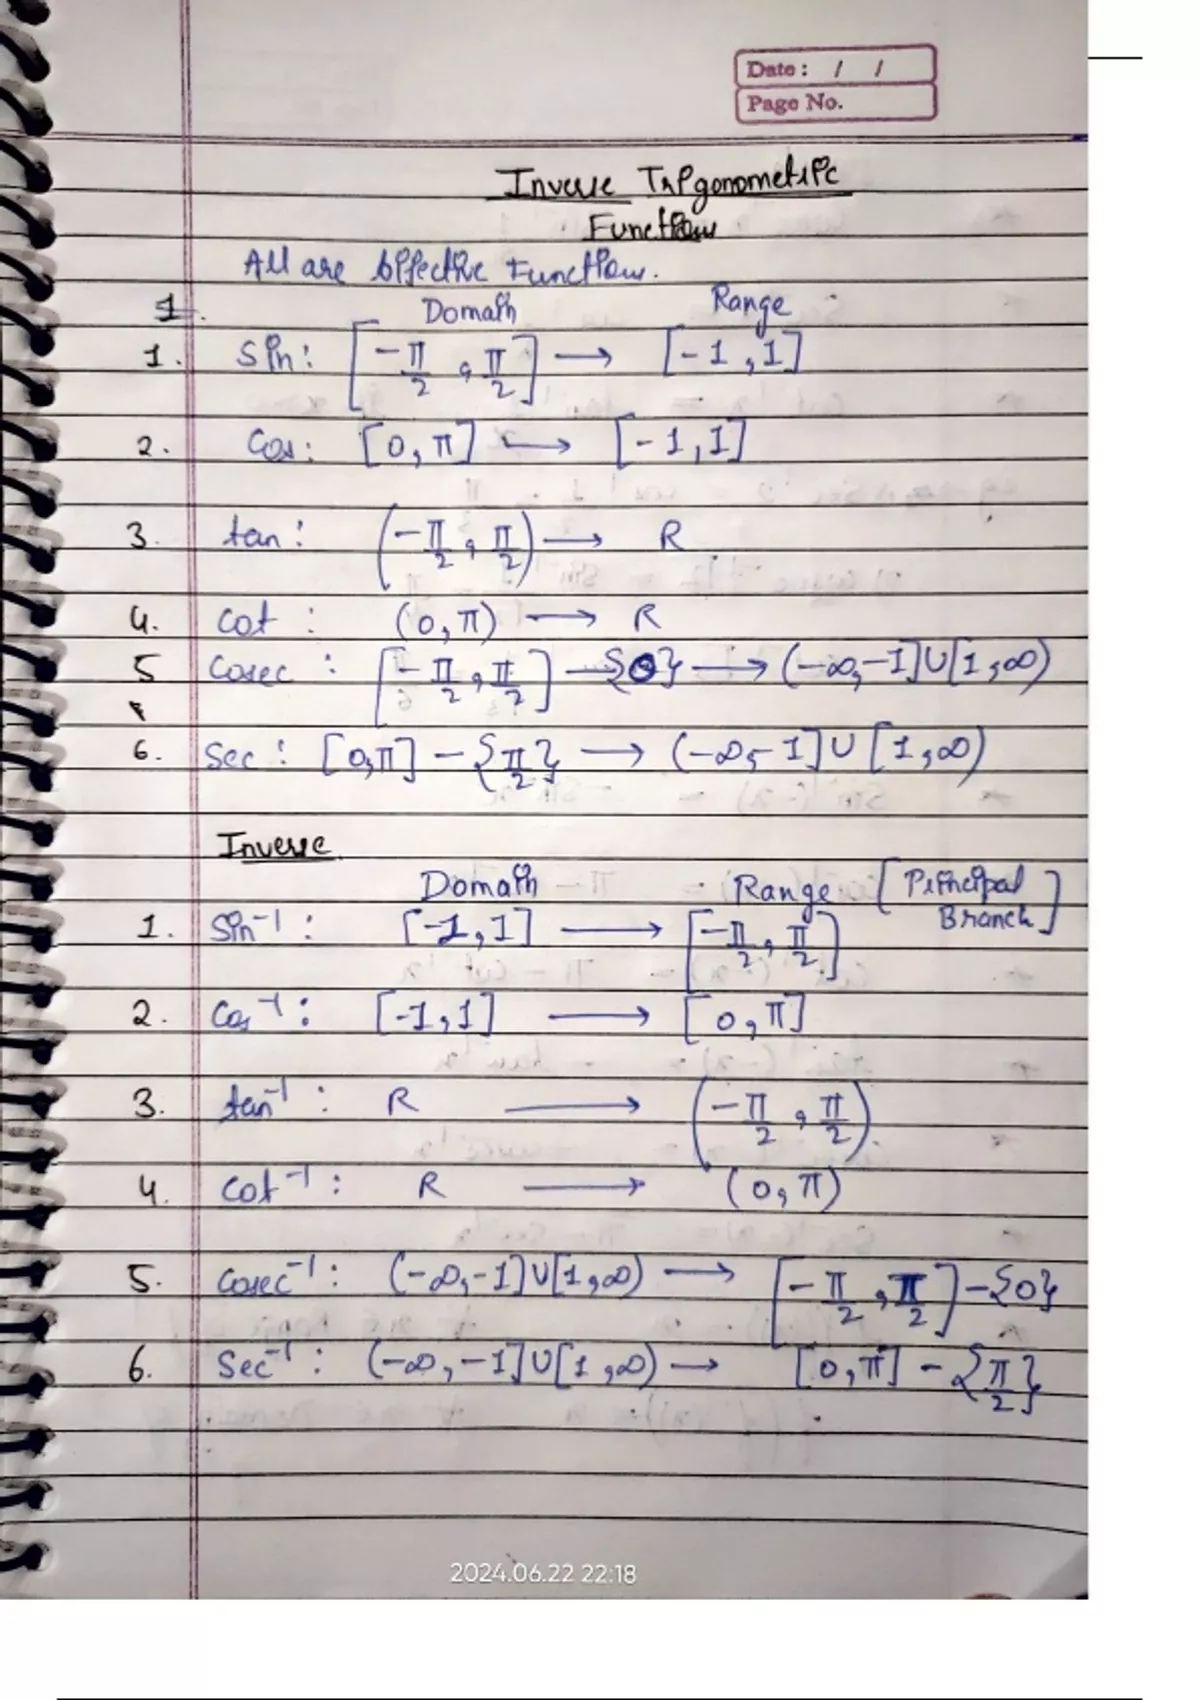 Date : / /
Page No.
Inverse Trigonometric
Functions
All are bijective Functions.
1.
Domain Range
1. Sin: [-π/2, π/2] → [-1, 1]
2. Cos: [0, π] → [-1, 1]
3. tan: (-π/2, π/2) → R
4. Cot : (0, π) → R
5 Cosec : [-π/2, π/2] - {0} → (-∞, -1] U [1, ∞)
6. Sec : [0, π] - {π/2} → (-∞, -1] U [1, ∞)
Inverse
Domain Range [Principal Branch]
1. Sin⁻¹ : [-1, 1] → [-π/2, π/2]
2. Cos⁻¹ : [-1, 1] → [0, π]
3. tan⁻¹ : R → (-π/2, π/2)
4. Cot⁻¹ : R → (0, π)
5. Cosec⁻¹ : (-∞, -1] U [1, ∞) → [-π/2, π/2] - {0}
6. Sec⁻¹ : (-∞, -1] U [1, ∞) → [0, π] - {π/2}
2024.06.22 22:18